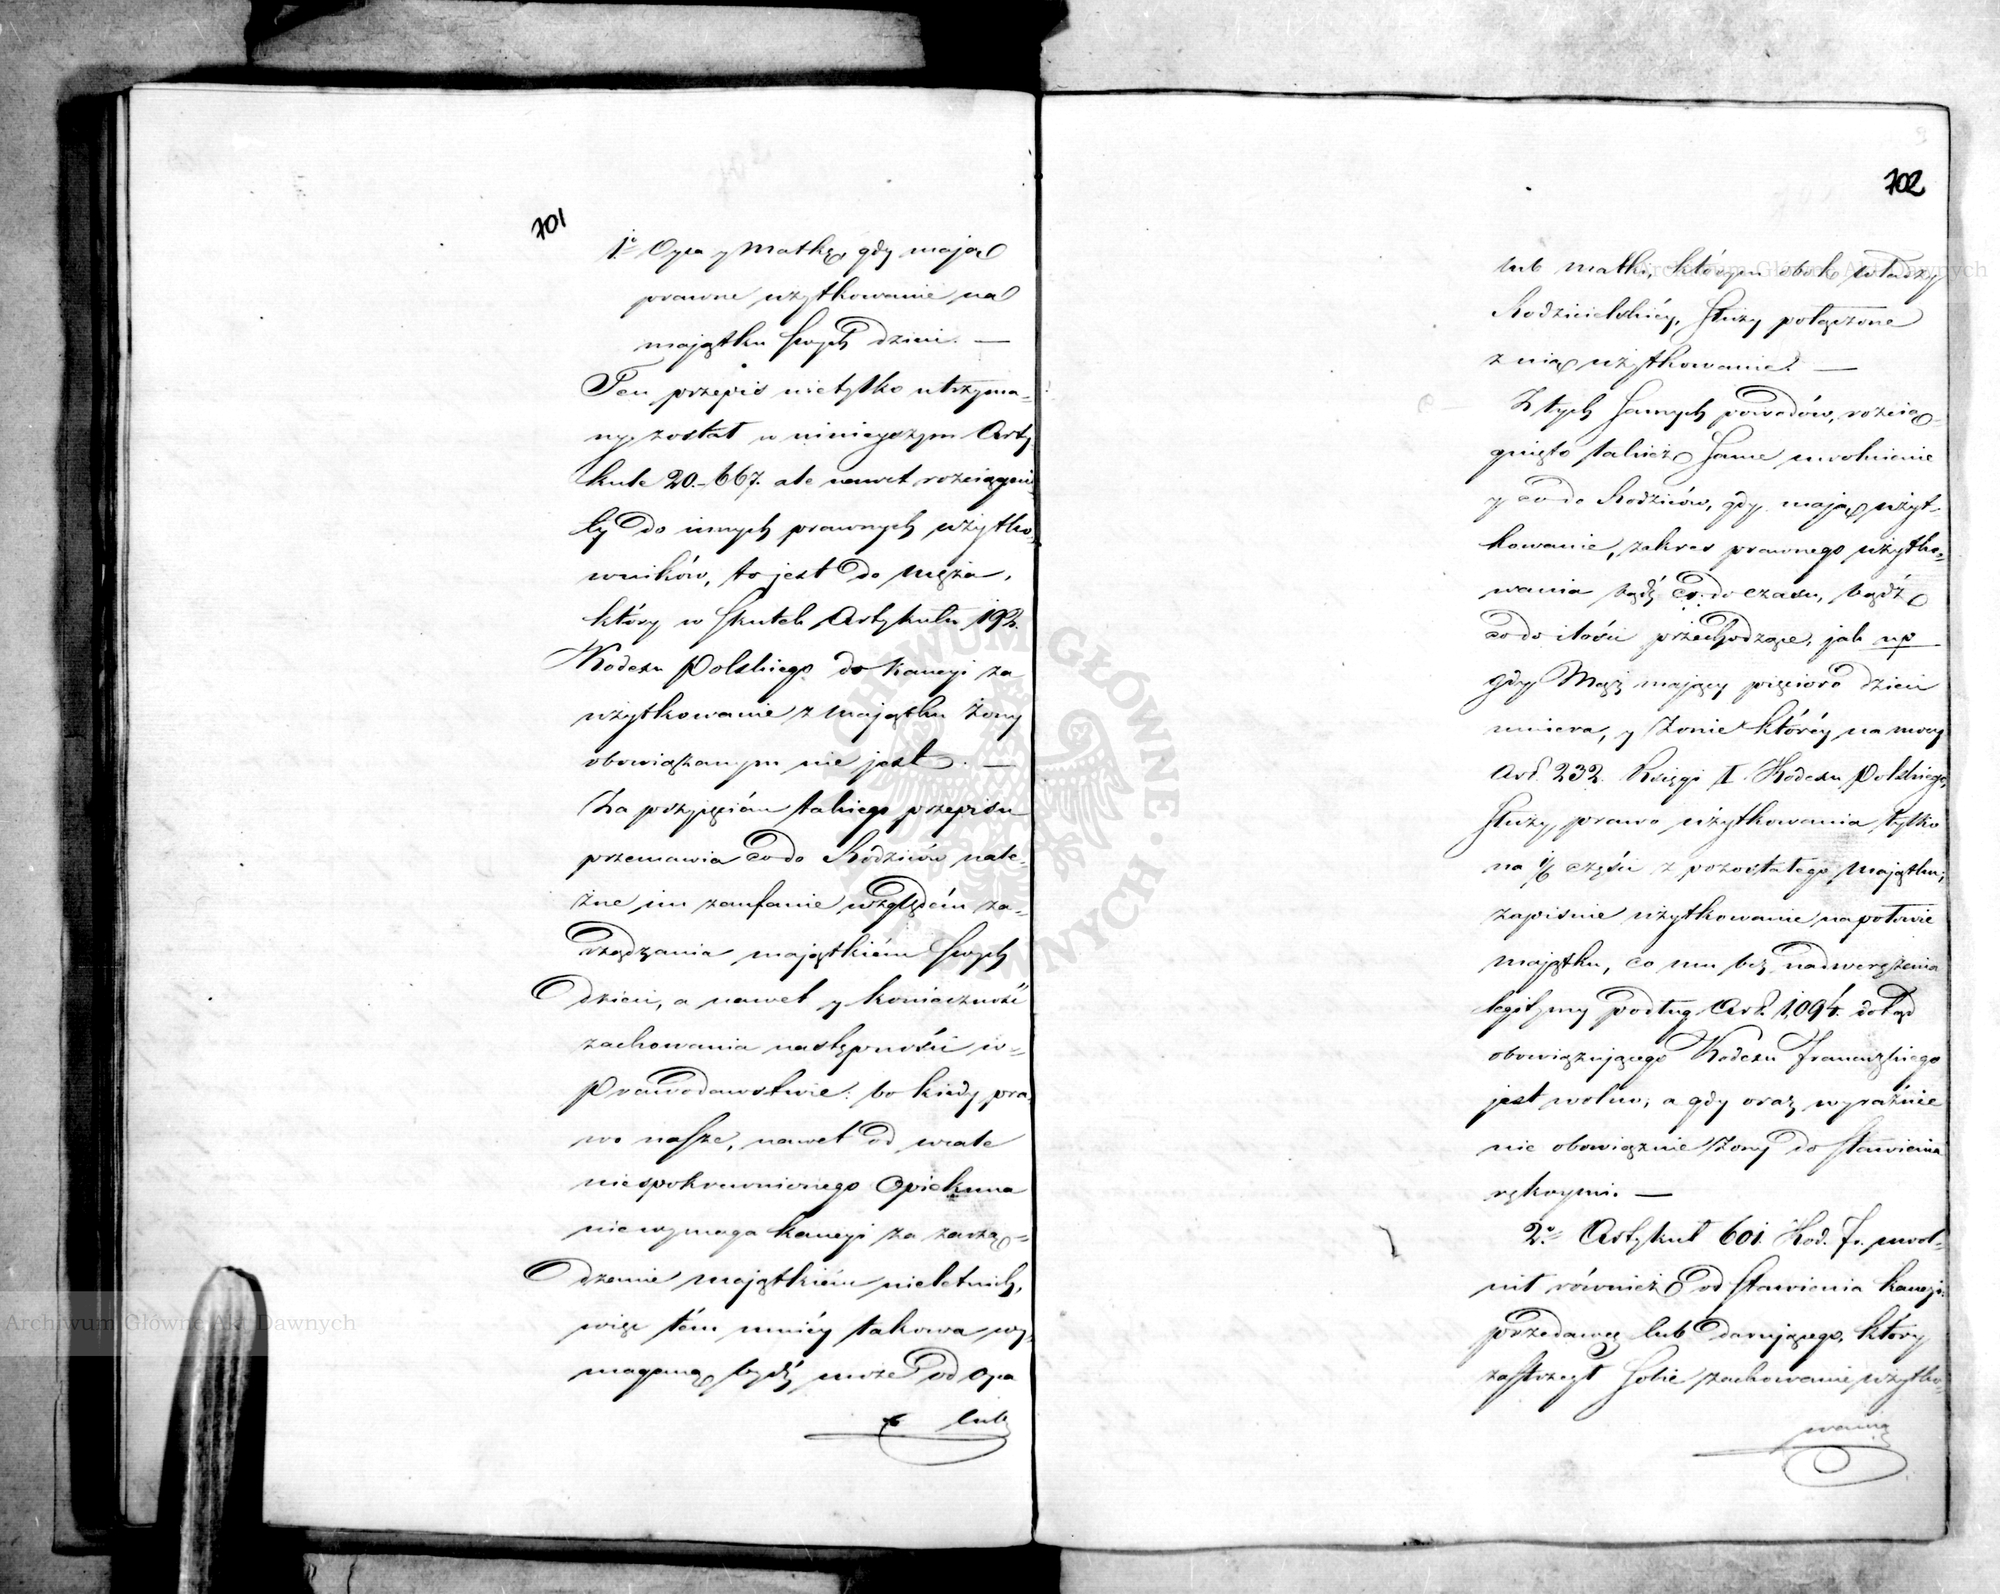 701
1º Oyca y Matkę, gdy mają
prawne użytkowanie na
majątku swych dzieci. —
Ten przepis nietylko utrzyma-
ny, został w niniejszym Arty-
kule 20.-667. ale nawet rozciągnię-
ty do innych prawnych użytko-
wników, to jest do męża,
który w skutek Artykułu 192.
Kodexu Polskiego do kaucyi za
użytkowanie z majątku Żony
obowiązanym nie jest. —
Za przyjęciem takiego przepisu
przemawia co do Rodziców nale-
żne im zaufanie względem za-
rządzania majątkiem swych
dzieci, a nawet y konieczność
zachowania następności w-
Prawodawstwie: bo kiedy pra-
wo nasze, nawet od wcale
niespokrewnionego Opiekuna
niewymaga kaucyi za zarzą-
dzanie majątkiem nieletnich,
więc tém mniéy takowa wy-
maganą bydź może od Oyca
lub
702
lub matki, którym obok władzy
Rodzicielskiéy, służy połączone
z nią użytkowanie. —
Z tych samych powodów, rozcią-
gnięto takież same uwolnienie
y co do Rodziców, gdy mają użyt-
kowanie, zakres prawnego użytko-
wania bądź co do czasu, bądź
co do ilości przechodzące, jak np
gdy Mąż mający pięcioro dzieci
umiera, y Żonie któréy na mocy
Art. 232. Księgi I. Kodexu Polskiego,
służy prawo użytkowania tylko
na 1/6 części z pozostałego majątku;
zapisuie użytkowanie na połowie
majątku, co mu bez nadwerężenia
legitymy podług Art. 1,094. dotąd
obowiązującego Kodexu Francuzkiego
jest wolno; a gdy oraz wyraźnie
nie obowiązuie Żony do stawienia
rękoymi. —
2º Artykuł 601. Kod. fr. uwol-
nił również od stawienia kaucyi
przedawcę lub daruiącego, który
zastrzegł sobie zachowanie użytko-
wania